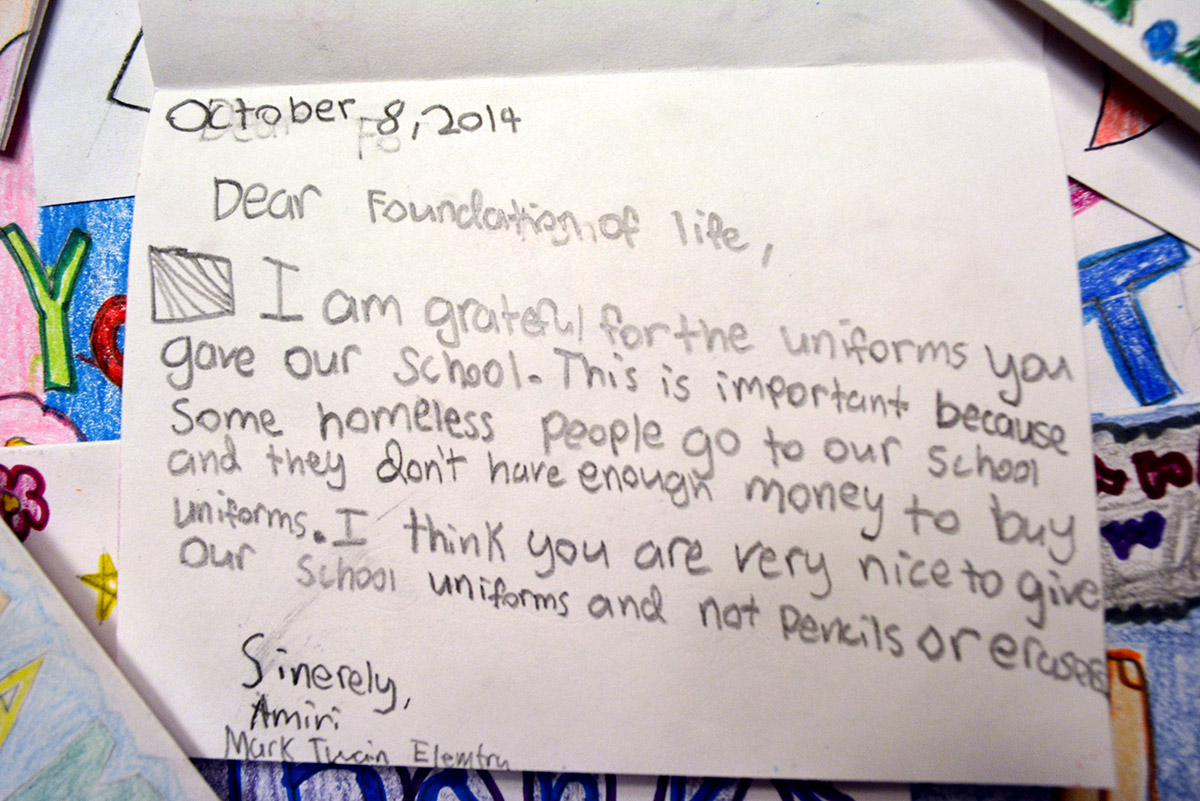 October 8, 2014
Dear Foundation of life,
I am grateful for the uniforms you
gave our School. This is important because
Some homeless people go to our School
and they don't have enough money to buy
uniforms. I think you are very nice to give
our School uniforms and not pencils or erases
Sinerely,
Amiri
Mark Twain Elemtry
Yo
T